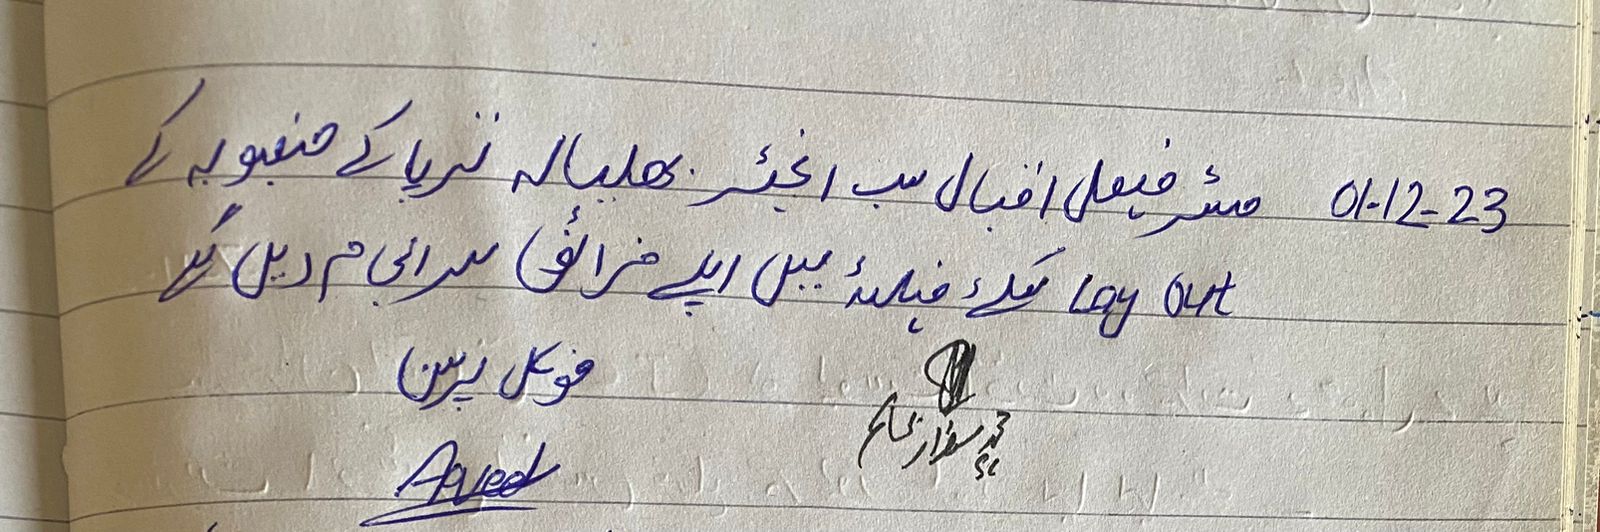 01-12-23 مسٹر فیصل اقبال سب انجینئر بھلیالہ نذریا کے منصوبہ کے
Lay Out کیلئے فیلڈ میں اپنے فرائض سرانجام دیں گے
فوکل پرسن
محمد سرفراز